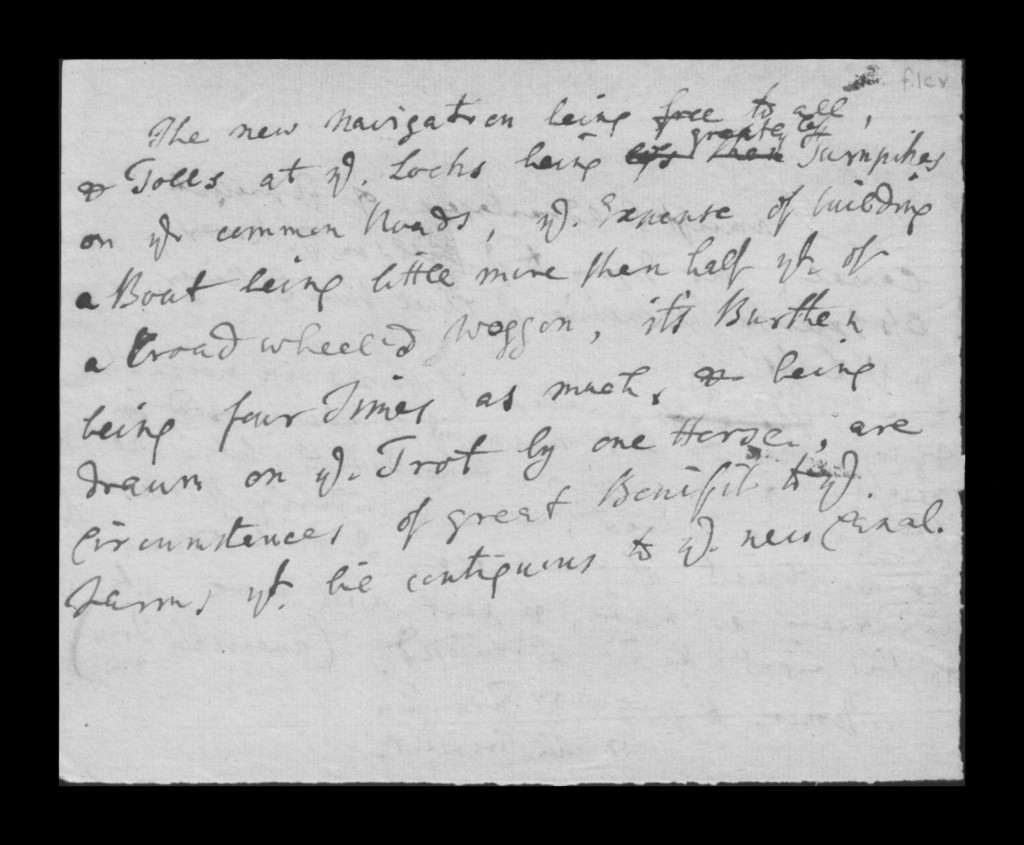 f.1cv
The new Navigation being free to all,
& Tolls at ye. Locks being less than greater yn Turnpikes
on ye common Roads, ye. Expense of building
a Boat being little more than half yt. of
a broad wheel'd Waggon, it's Burthen
being four Times as much, & being
drawn on ye. Trot by one Horse, are
Circumstances of great Benifit to ye.
Farms yt. lie contiguous to ye. new Canal.